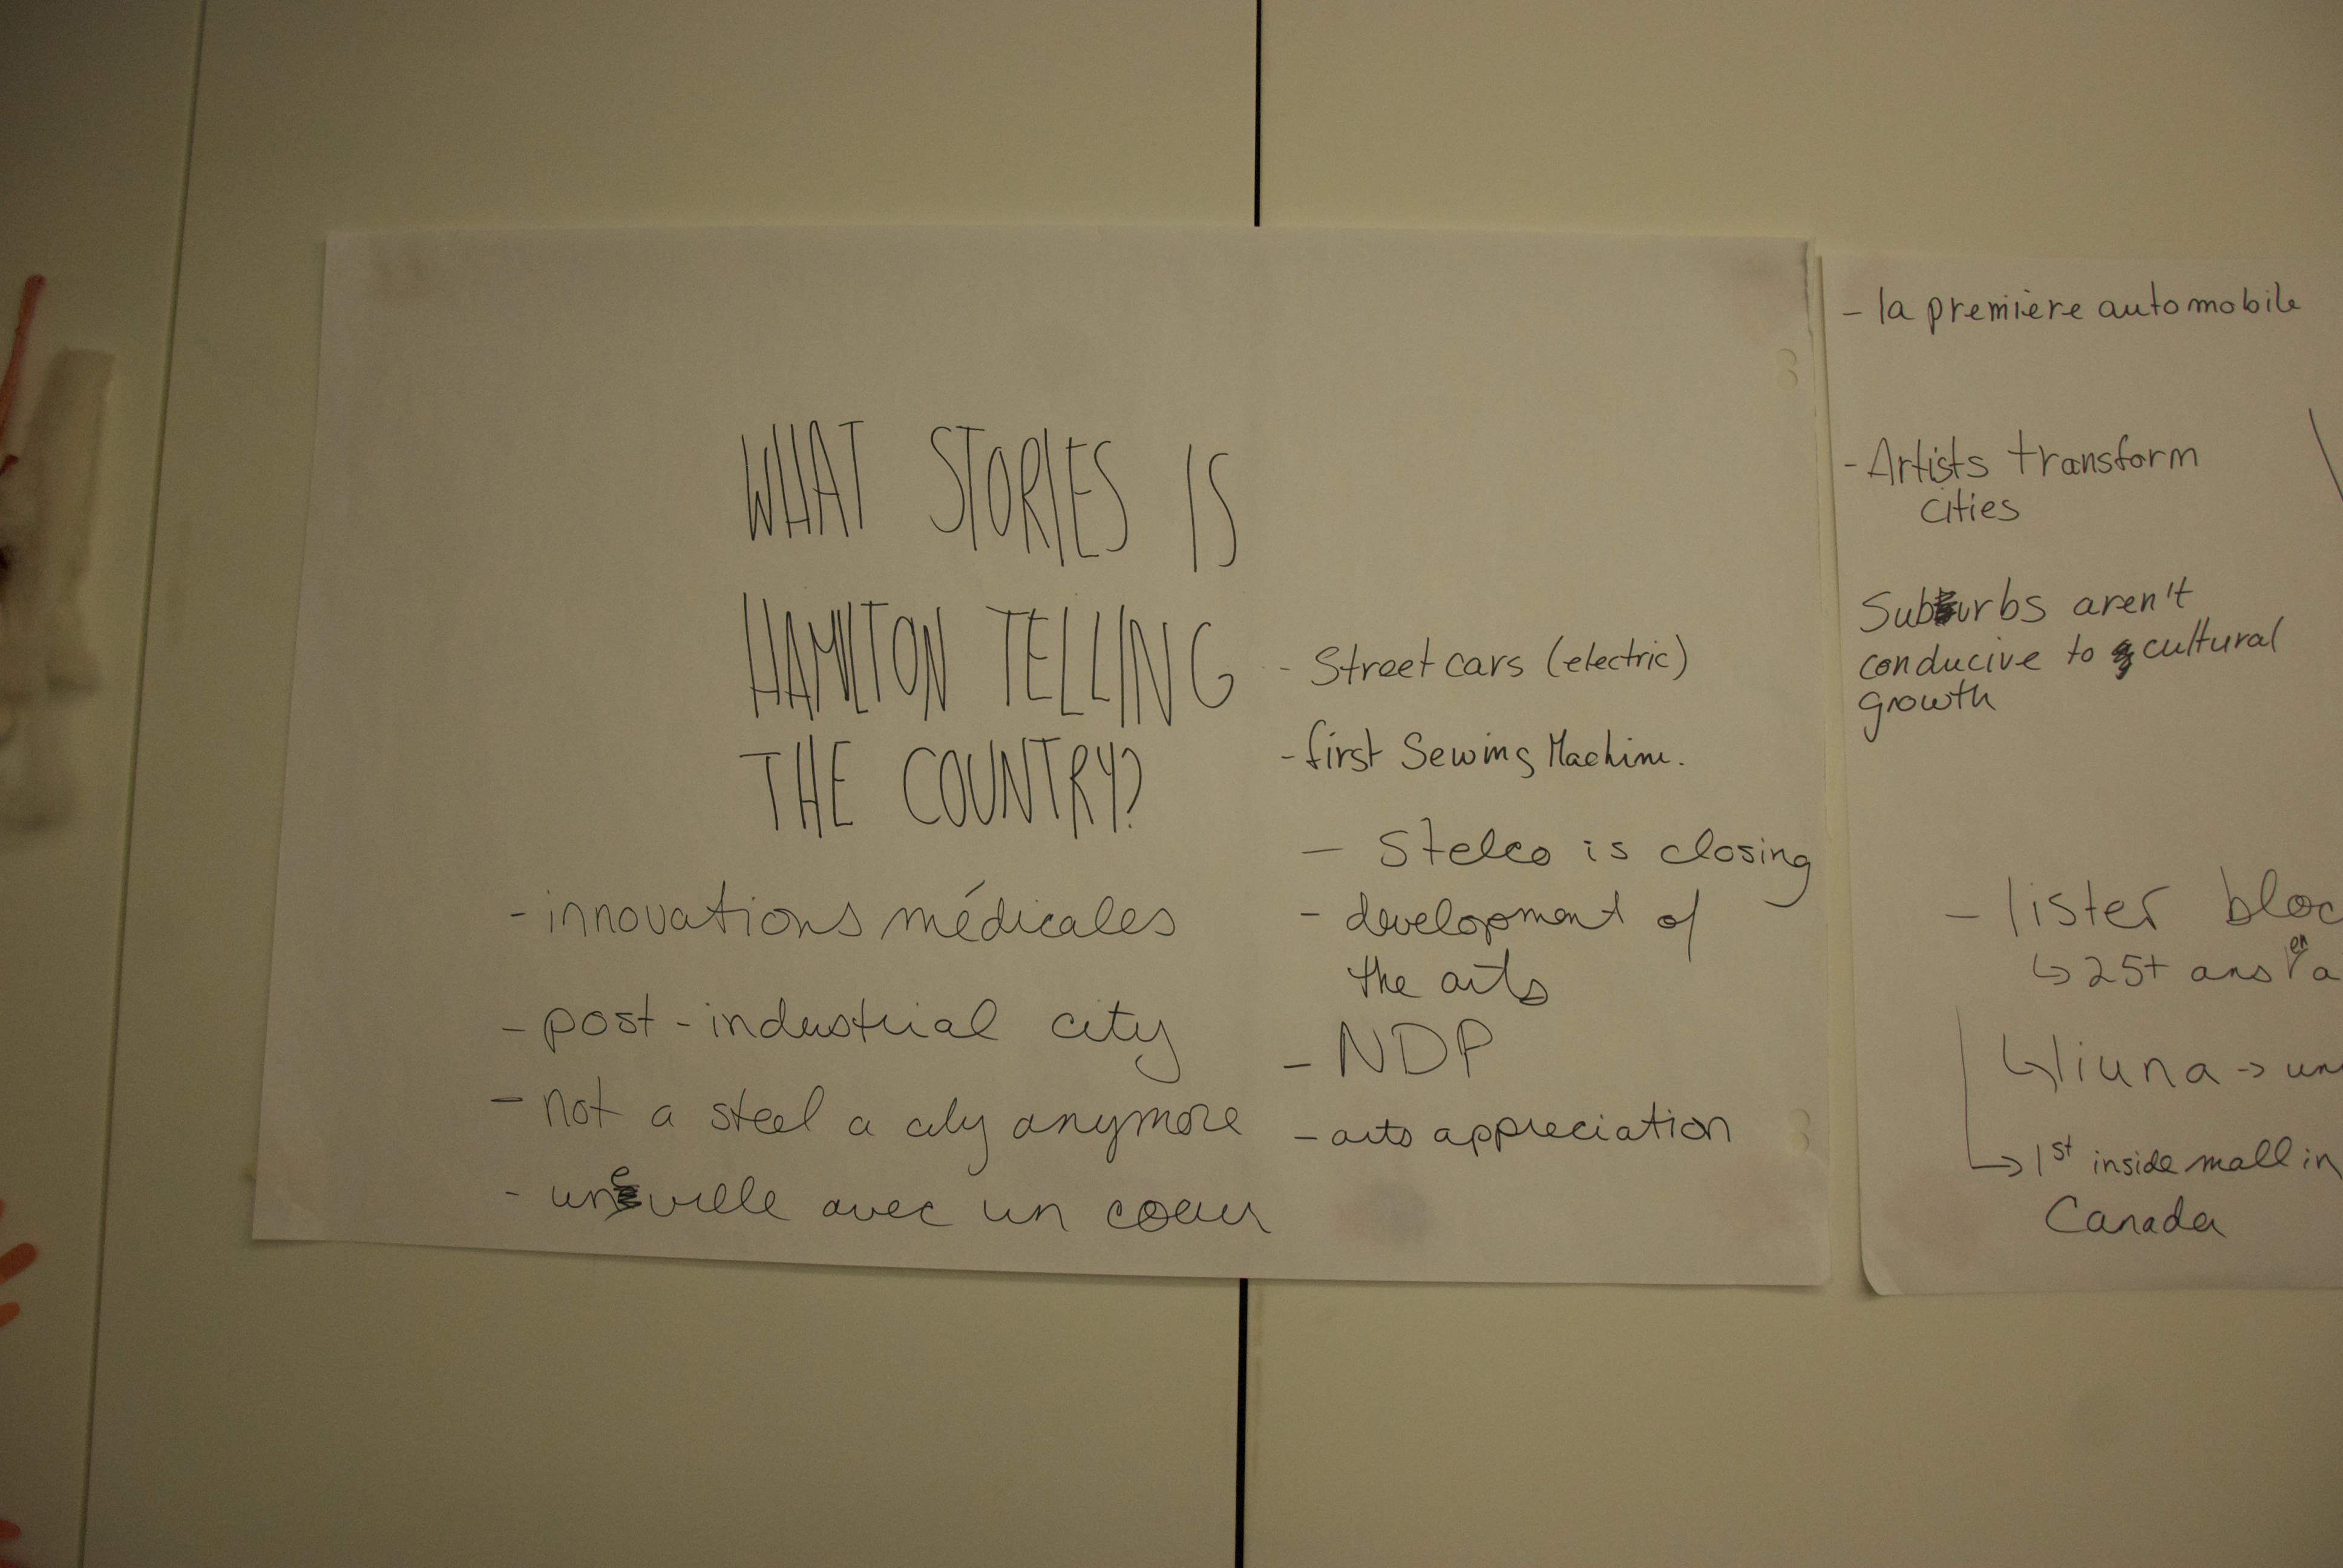 WHAT STORIES IS
HAMILTON TELLING
THE COUNTRY?
- innovations médicales
- post-industrial city
- not a steel a city anymore
- une ville avec un coeur
- Streetcars (electric)
- first Sewing Machine.
- Stelco is closing
- development of
the arts
- NDP
- arts appreciation
- la première automobile
- Artists transform
cities
Suburbs aren't
conducive to cultural
growth
- lister bloc
↳ 25+ ans en a
↳ liuna → un
→ 1st inside mall in
Canada